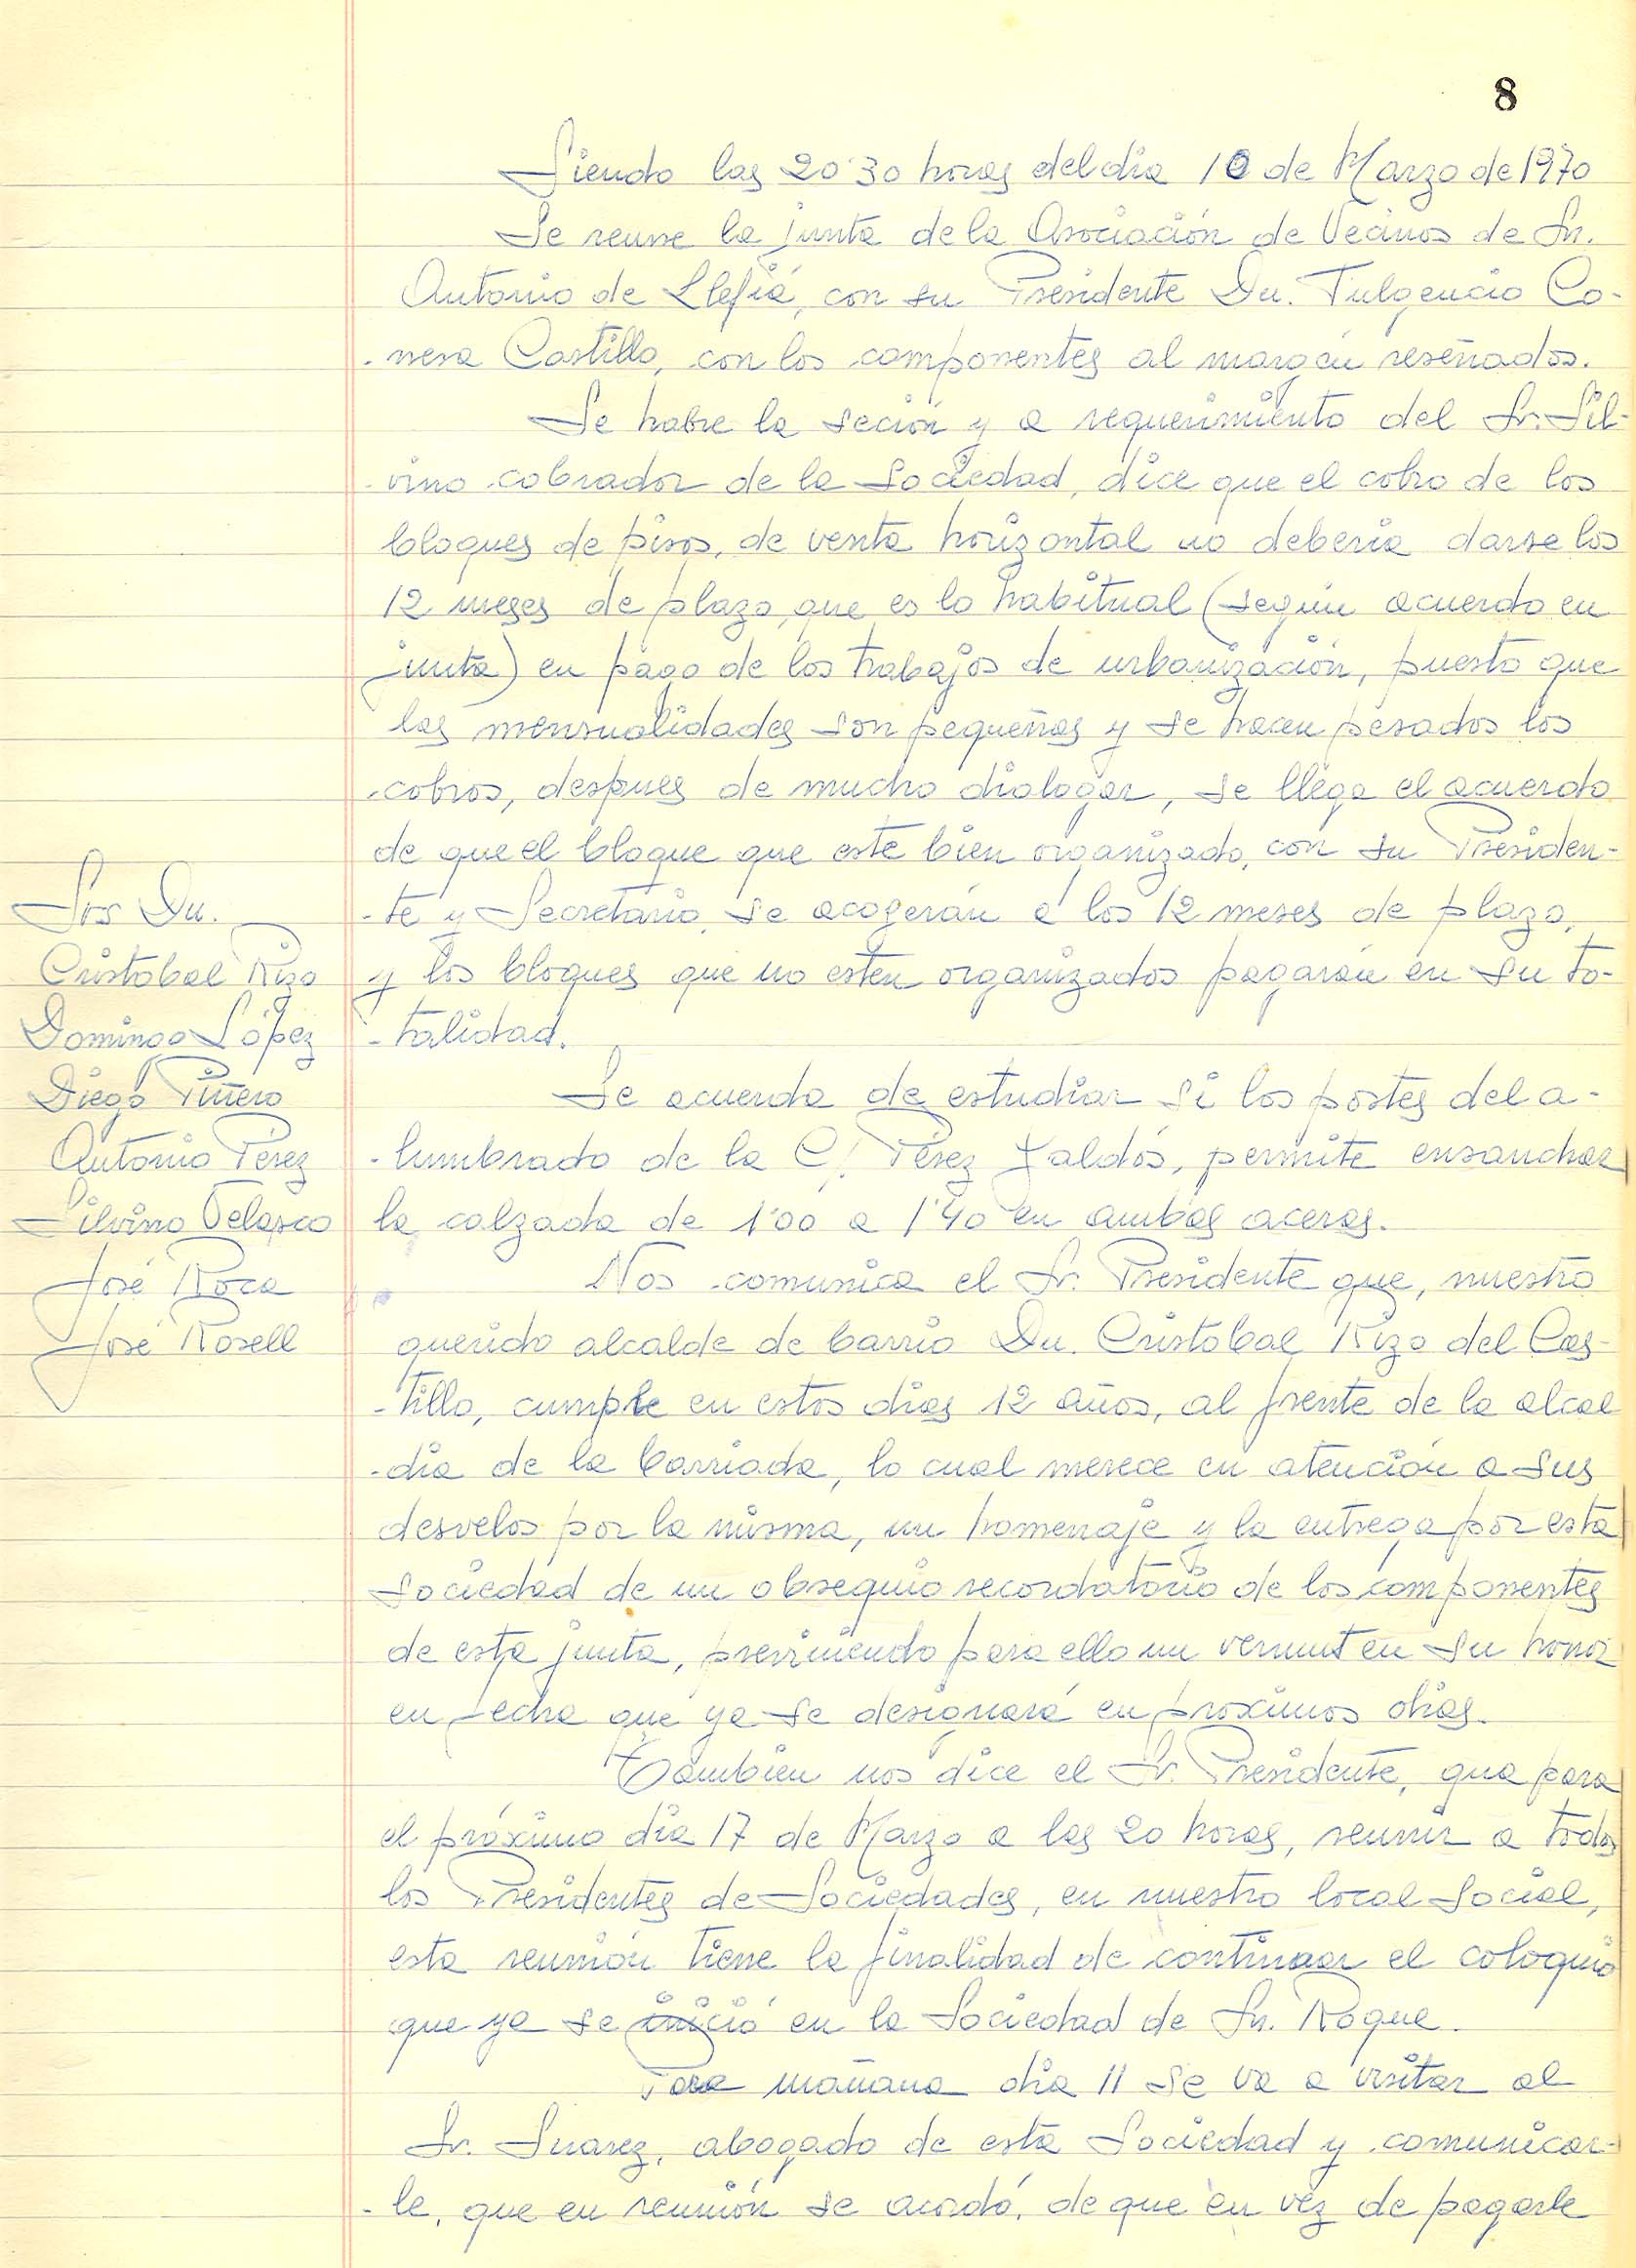 8
Siendo las 20'30 horas del dia 10 de Marzo de 1970
Se reune la junta de la Asociación de Vecinos de Sn.
Antonio de Llefiá, con su Presidente Dn. Fulgencio Co-
-nesa Castillo, con los componentes al margen reseñados.
Se habre la seción y a requerimiento del Sr. Sil-
-vino cobrador de la Sociedad, dice que el cobro de los
bloques de pisos, de venta horizontal no deberia darse los
12 meses de plazo, que es lo habitual (según acuerdo en
junta) en pago de los trabajos de urbanización, puesto que
las mensualidades son pequeñas y se hacen pesados los
cobros, despues de mucho dialogar, se llega el acuerdo
de que el bloque que este bien organizado, con su Presiden-
-te y Secretario, se acogerán a los 12 meses de plazo,
y los bloques que no estén organizados pagarán en su to-
-talidad.
Se acuerda de estudiar si los postes del a-
-lumbrado de la C/. Pérez Galdós, permite ensanchar
la calzada de 1'00 a 1'40 en ambas aceras.
Nos comunica el Sr. Presidente que, nuestro
querido alcalde de barrio Dn. Cristobal Rizo del Cas-
-tillo, cumple en estos dias 12 años, al frente de la alcal
-dia de la barriada, lo cual merece en atención a sus
desvelos por la misma, un homenaje y la entrega por esta
Sociedad de un obsequio recordatorio de los componentes
de esta junta, previniendo para ello un vermut en su honor
en fecha que ya se designará en proximos dias.
Tambien nos dice el Sr. Presidente, que para
el próximo dia 17 de Marzo a las 20 horas, reunir a todos
los Presidentes de Sociedades, en nuestro local Social,
esta reunión tiene la finalidad de continuar el coloquio
que ya se inició en la Sociedad de Sn. Roque.
Para mañana dia 11 se va a visitar al
Sr. Suarez, abogado de esta Sociedad y comunicar-
-le, que en reunión se acordó, de que en vez de pagarle
Srs Dn.
Cristobal Rizo
Domingo López
Diego Piñero
Antonio Pérez
Silvino Velasco
José Roca
José Rosell